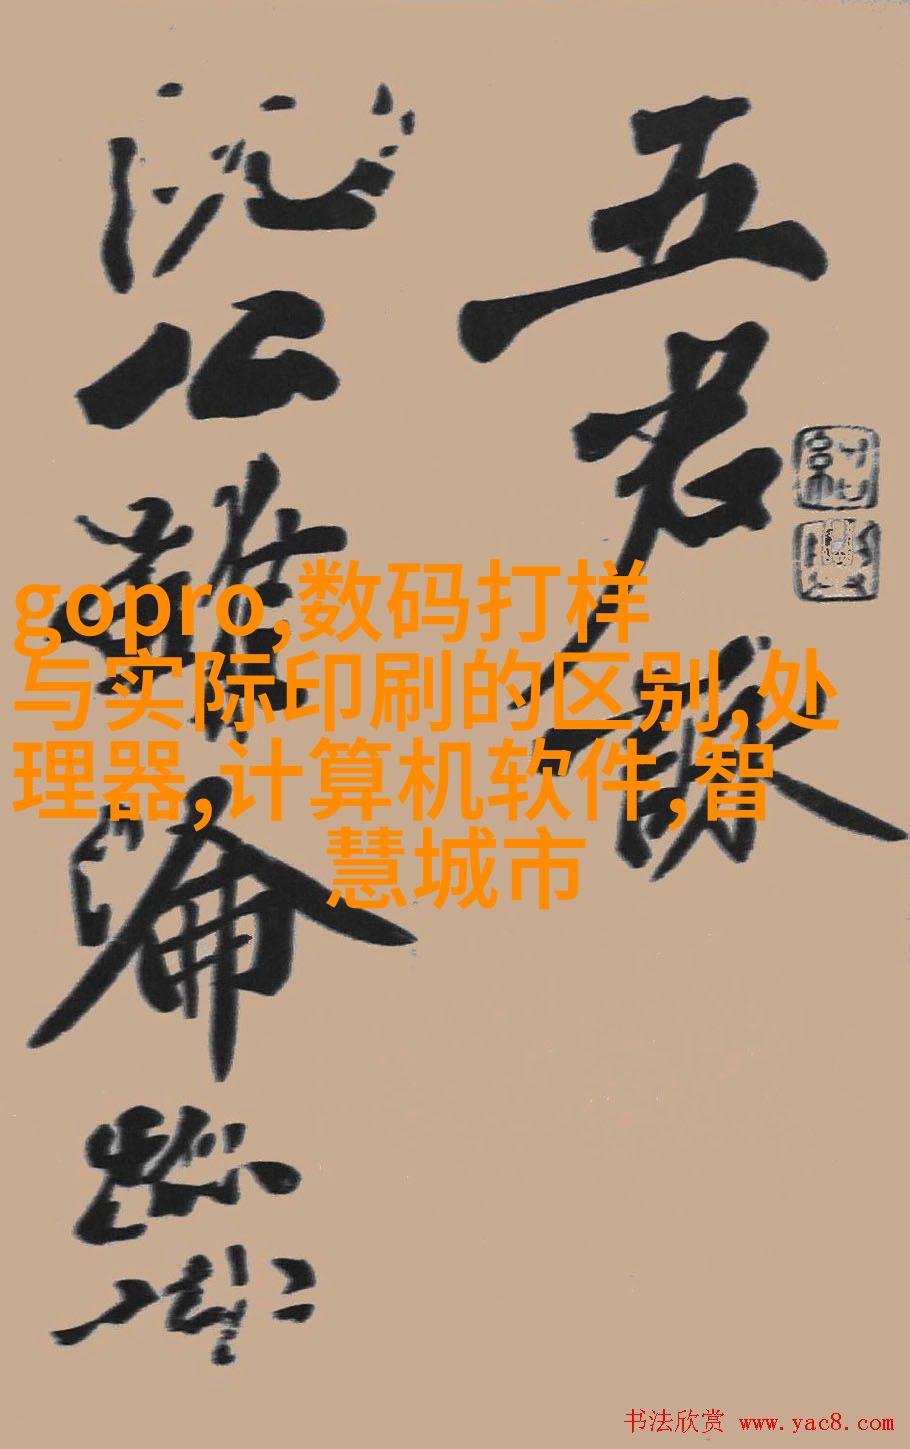 五君詠
阮公雖淪跡
gopro,数码打样
与实际印刷的区别,处
理器,计算机软件,智
慧城市
书法欣赏 www.yac8.com